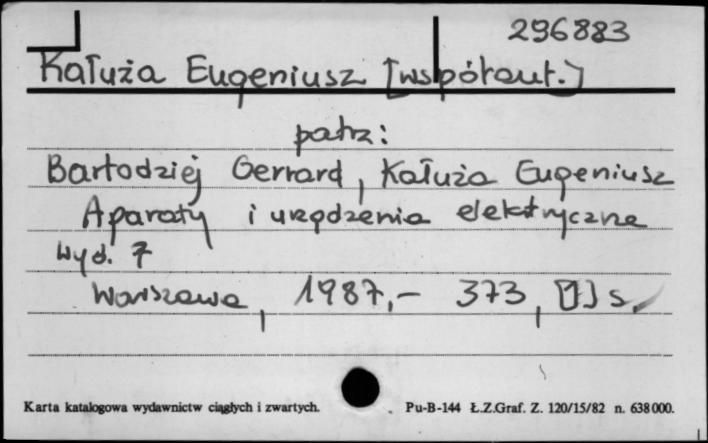 296883
Kałuża Eugeniusz [współaut.]
patrz:
Bartodziej Gerrard, Kałuża Eugeniusz
Aparaty i urządzenia elektryczne
Wyd. 7
Warszawa, 1987,- 373, [1] s.
Karta katalogowa wydawnictw ciągłych i zwartych. Pu-B-144 Ł.Z.Graf. Z. 120/15/82 n. 638000.